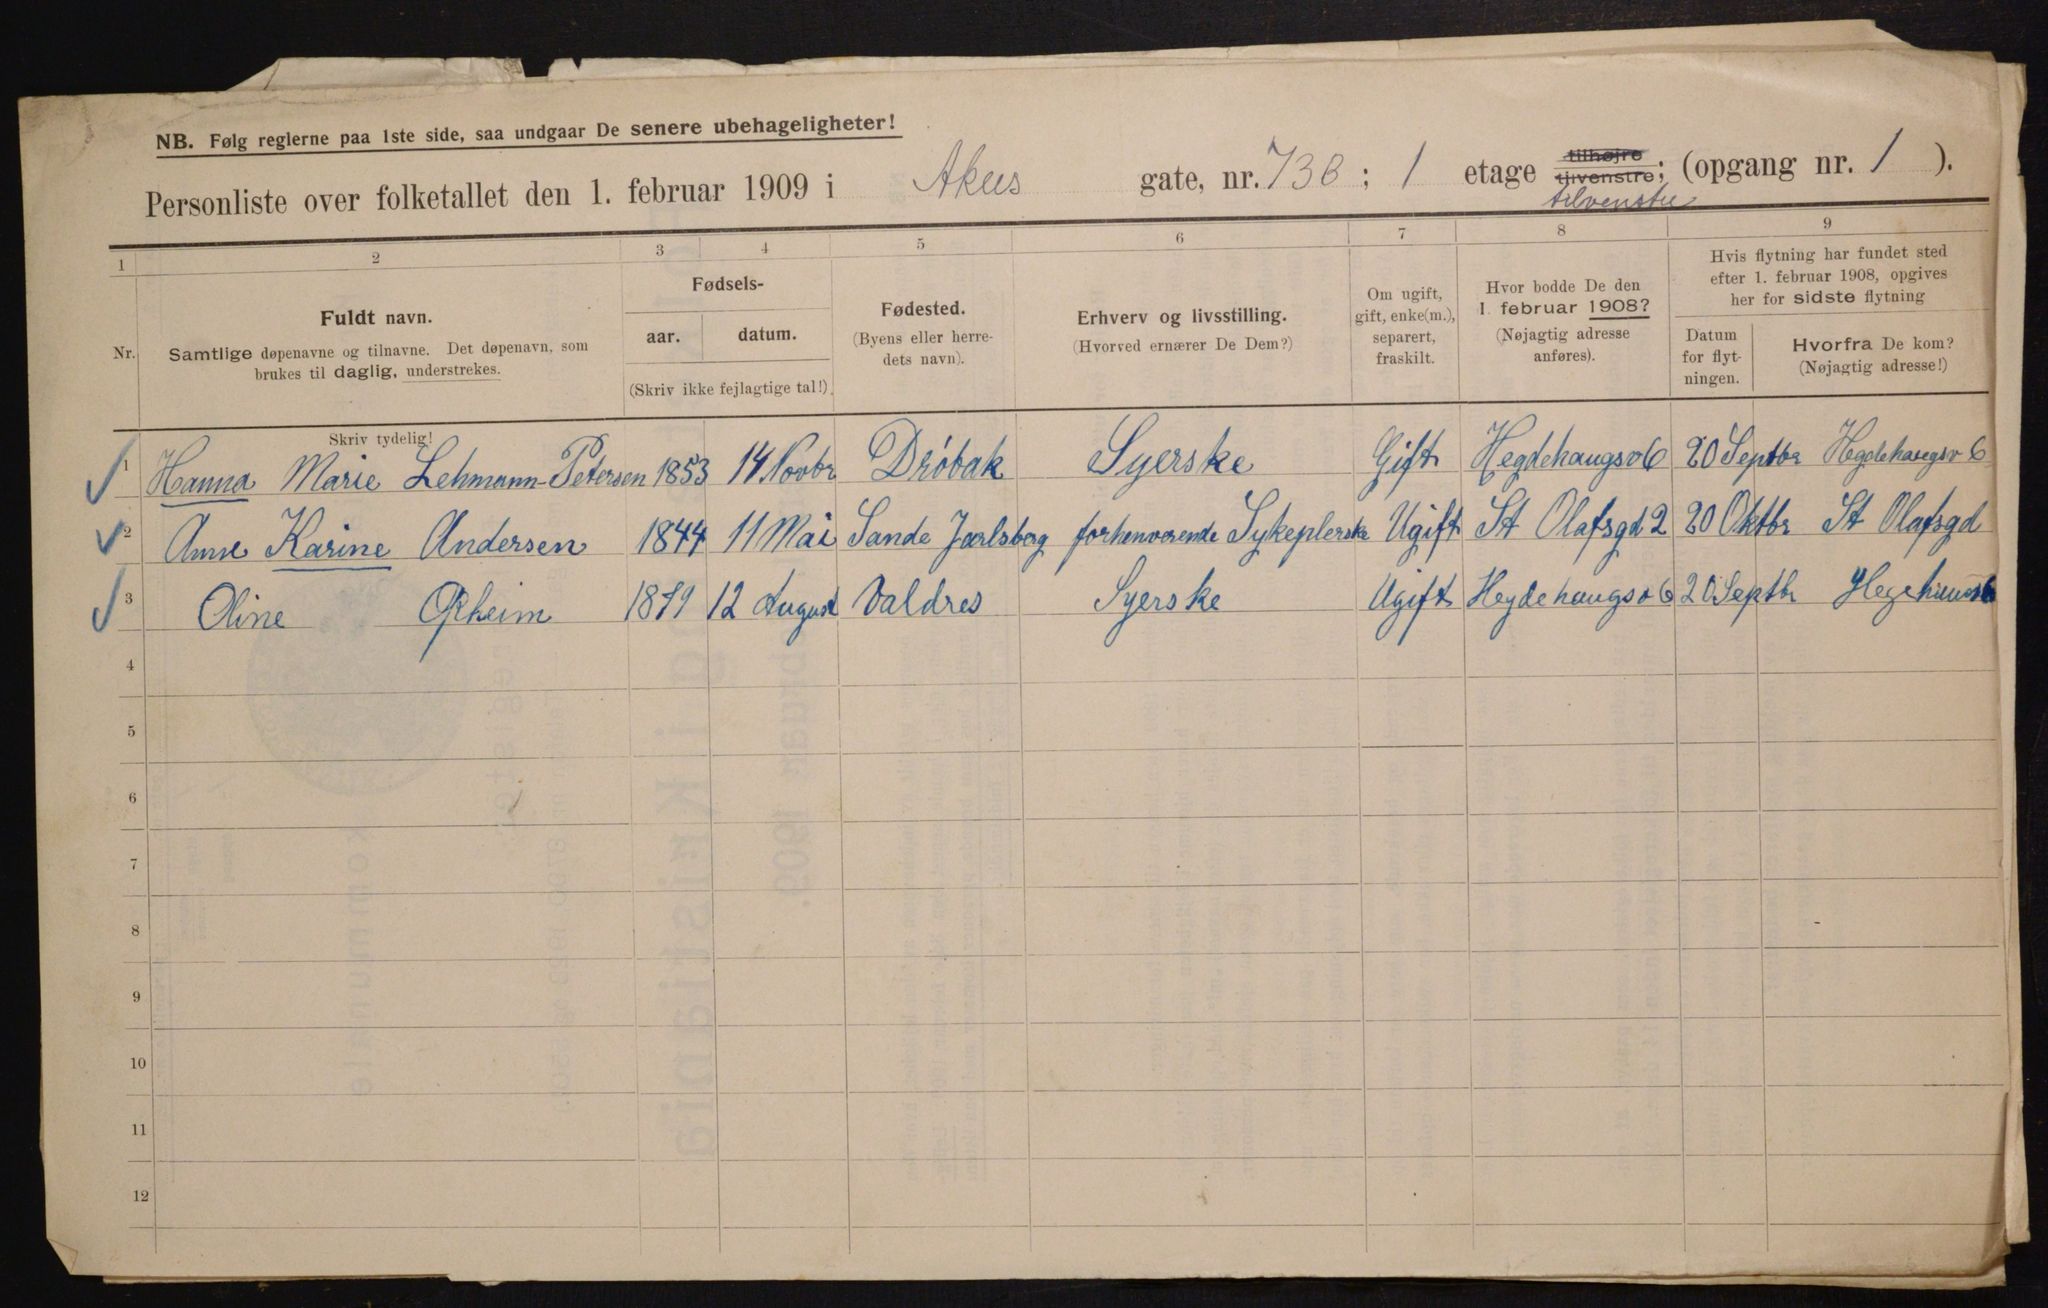 NB. Følg reglerne paa 1ste side, saa undgaar De senere ubehageligheter!
Personliste over folketallet den 1. februar 1909 i Akers gate, nr. 73B ; 1 etage tilhøjre tilvenstre; (opgang nr. 1 ).
tilvenstre
1 2 3 4 5 6 7 8 9
Nr.
Fuldt navn.
Samtlige døpenavne og tilnavne. Det døpenavn, som
brukes til daglig, understrekes.
Fødsels-
aar. datum.
(Skriv ikke fejlagtige tal!)
Fødested.
(Byens eller herre-
dets navn).
Erhverv og livsstilling.
(Hvorved ernærer De Dem?)
Om ugift,
gift, enke(m.),
separert,
fraskilt.
Hvor bodde De den
1. februar 1908?
(Nøjagtig adresse
anføres).
Hvis flytning har fundet sted
efter 1. februar 1908, opgives
her for sidste flytning
Datum
for flyt-
ningen.
Hvorfra De kom?
(Nøjagtig adresse!)
Skriv tydelig!
1 Hanna Marie Lehmann-Petersen 1853 14 Novbr Drøbak Syerske Gift Hegdehaugsv 6 20 Septbr Hegdehaugsv 6
2 Anne Karine Andersen 1844 11 Mai Sande Jarlsberg forhenværende Sykeplerske Ugift St Olafsgd 2 20 Oktbr St Olafsgd
3 Oline 12 August Valdres Syerske Ugift Hegdehaugsv 6 20 Septbr
4
5
6
7
8
9
10
11
12